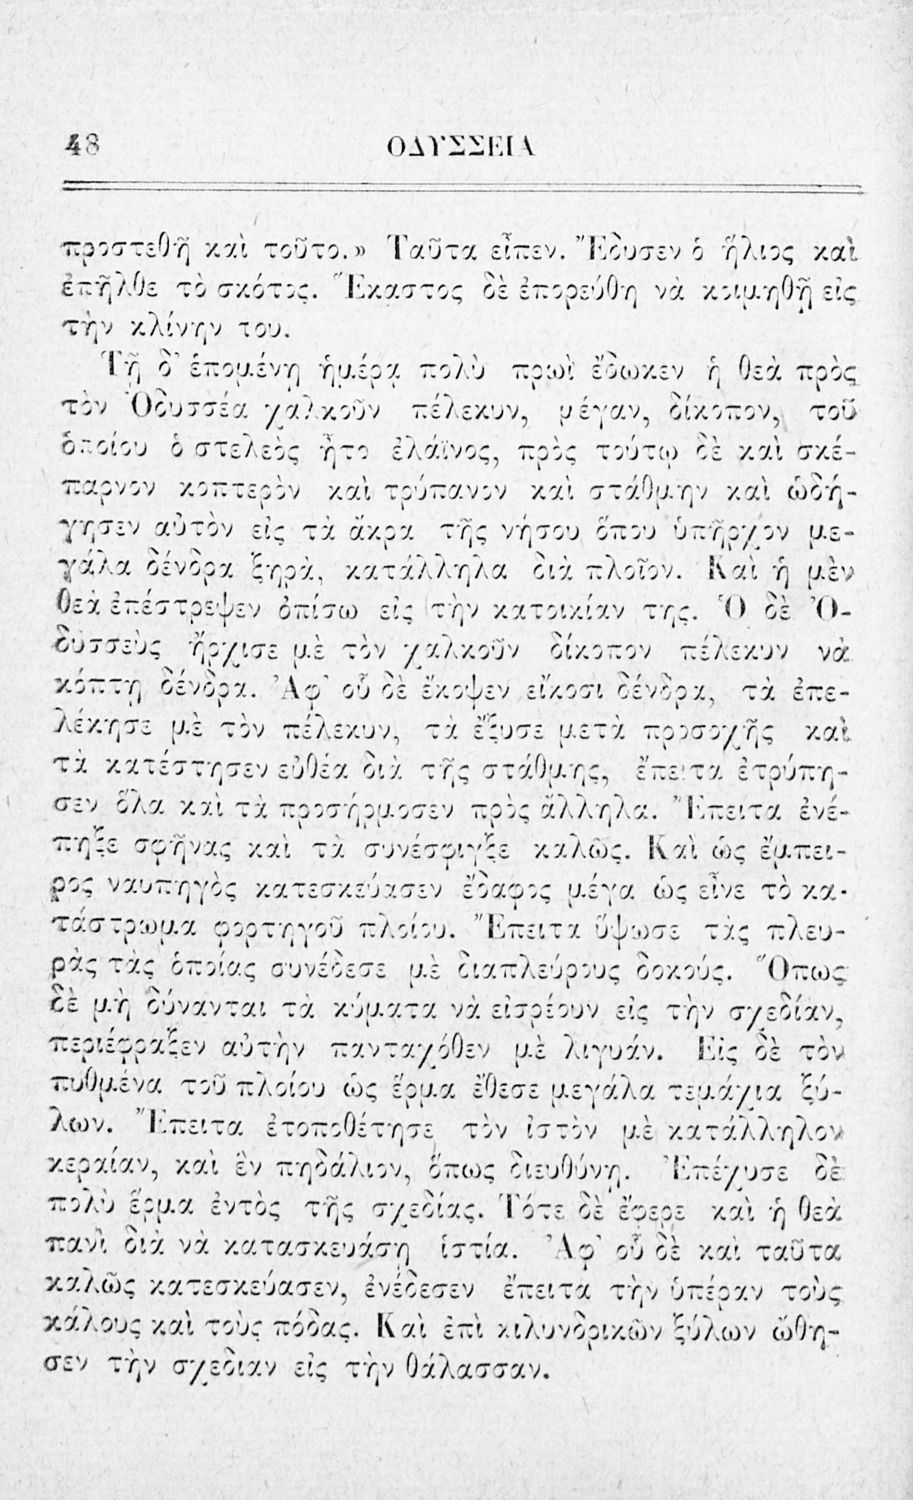 48 ΟΔΥΣΣΕΙΑ
προστεθῇ καὶ τοῦτο.» Ταῦτα εἶπεν. Ἔδυσεν ὁ ἥλιος καὶ
ἐπῆλθε τὸ σκότος. Ἕκαστος δὲ ἐπορεύθη νὰ κοιμηθῇ εἰς
τὴν κλίνην του.
Τῇ δ' ἑπομένῃ ἡμέρᾳ πολὺ πρωῒ ἔδωκεν ἡ θεὰ πρὸς
τὸν Ὀδυσσέα χαλκοῦν πέλεκυν, μέγαν, δίκοπον, τοῦ
ὁποίου ὁ στελεὸς ἦτο ἐλάϊνος, πρὸς τούτῳ δὲ καὶ σκέ-
παρνον κοπτερὸν καὶ τρύπανον καὶ στάθμην καὶ ὡδή-
γησεν αὐτὸν εἰς τὰ ἄκρα τῆς νήσου ὅπου ὑπῆρχον με-
γάλα δένδρα ξηρὰ, κατάλληλα διὰ πλοῖον. Καὶ ἡ μὲν
θεὰ ἐπέστρεψεν ὀπίσω εἰς τὴν κατοικίαν της. Ὁ δὲ Ὀ-
δυσσεὺς ἤρχισε μὲ τὸν χαλκοῦν δίκοπον πέλεκυν νὰ
κόπτῃ δένδρα. Ἀφ' οὗ δὲ ἔκοψεν εἴκοσι δένδρα, τὰ ἐπε-
λέκησε μὲ τὸν πέλεκυν, τὰ ἔξυσε μετὰ προσοχῆς καὶ
τὰ κατέστησεν εὐθέα διὰ τῆς στάθμης, ἔπειτα ἐτρύπη-
σεν ὅλα καὶ τὰ προσήρμοσεν πρὸς ἄλληλα. Ἔπειτα ἐνέ-
πηξε σφῆνας καὶ τὰ συνέσφιγξε καλῶς. Καὶ ὡς ἔμπει-
ρος ναυπηγὸς κατεσκεύασεν ἔδαφος μέγα ὡς εἶνε τὸ κα-
τάστρωμα φορτηγοῦ πλοίου. Ἔπειτα ὕψωσε τὰς πλευ-
ρὰς τὰς ὁποίας συνέδεσε μὲ διαπλεύρους δοκούς. Ὅπως
δὲ μὴ δύνανται τὰ κύματα νὰ εἰσρέουν εἰς τὴν σχεδίαν,
περιέφραξεν αὐτὴν πανταχόθεν μὲ λιγυάν. Εἰς δὲ τὸν
πυθμένα τοῦ πλοίου ὡς ἕρμα ἔθεσε μεγάλα τεμάχια ξύ-
λων. Ἔπειτα ἐτοποθέτησε τὸν ἱστὸν μὲ κατάλληλον
κεραίαν, καὶ ἓν πηδάλιον, ὅπως διευθύνῃ. Ἐπέχυσε δὲ
πολὺ ἕρμα ἐντὸς τῆς σχεδίας. Τότε δὲ ἔφερε καὶ ἡ θεὰ
πανὶ διὰ νὰ κατασκευάσῃ ἱστία. Ἀφ' οὗ δὲ καὶ ταῦτα
καλῶς κατεσκεύασεν, ἐνέδεσεν ἔπειτα τὴν ὑπέραν τοὺς
κάλους καὶ τοὺς πόδας. Καὶ ἐπὶ κιλυνδρικῶν ξύλων ὤθη-
σεν τὴν σχεδιαν εἰς τὴν θάλασσαν.